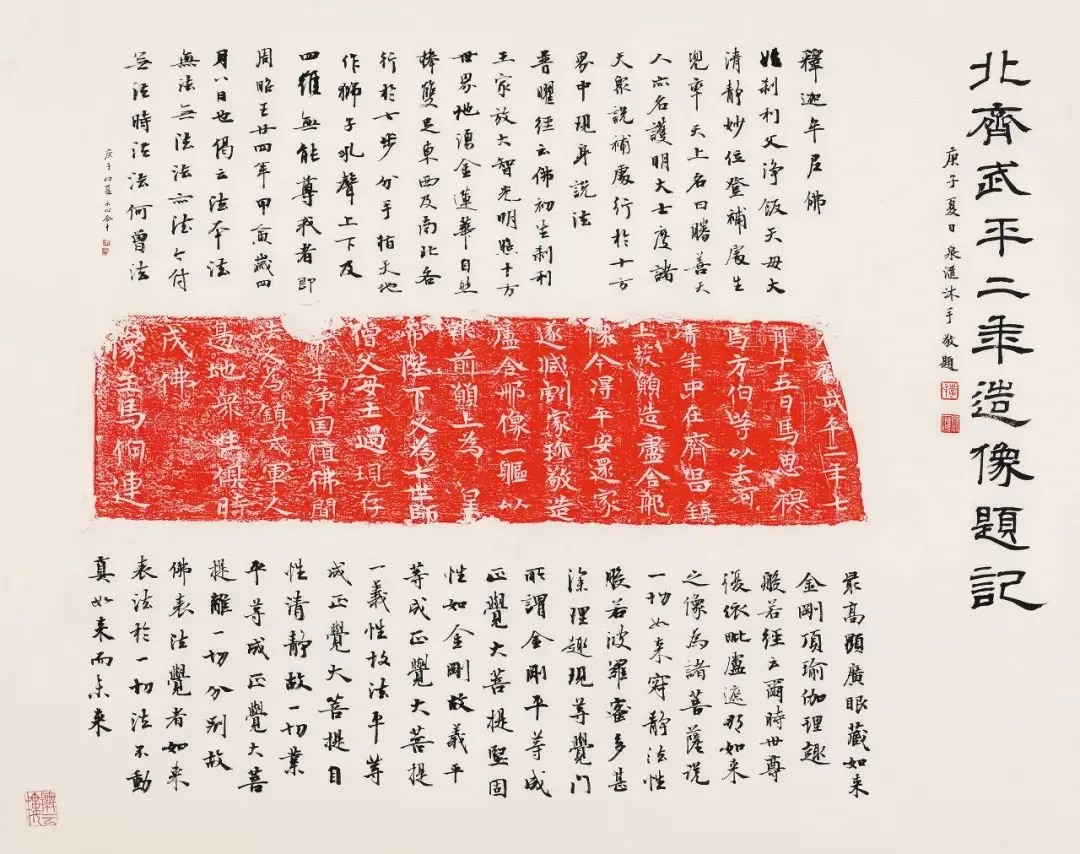 北齊武平二年造像題記
庚子夏日泉滙沐手敬題
釋迦牟尼佛
姓刹利父淨飯天母大
清靜妙位登補處生
兜率天上名曰勝善天
人亦名護明大士度諸
天衆說補處行於十方
界中現身說法
普曜經云佛初生刹利
王家放大智光明照十方
世界地湧金蓮華自然
捧雙足東西及南北各
行於七步分手指天地
作獅子吼聲上下及
四維無能尊我者即
周昭王廿四年甲寅歲四
月八日也偈云法本法
無法無法法亦法今付
無法時法法何曾法
庚子初夏
齊武平二年七
月十五日馬思禩
馬方伯等以去河
清年中在齊昌鎮
上敬願造盧舍那
像今得平安還家
遂減割家珎敬造
盧舍那像一軀以
報前願上為皇
帝陛下又為七世師
僧父母生過現存
生淨国值佛聞
法又為鎮軍人
邊地衆生俱時
成佛
像主馬伯連
最高顯廣眼藏如来
金剛頂瑜伽理趣
般若經云爾時世尊
復依毗盧遮那如来
之像為諸菩薩說
一切如来寂靜法性
般若波羅蜜多甚
深理趣現等覺門
所謂金剛平等成
正覺大菩提堅固
性如金剛故義平
等成正覺大菩提
一義性故法平等
成正覺大菩提自
性清靜故一切業
平等成正覺大菩
提離一切分别故
佛表法覺者如来
表法於一切法不動
真如来而未来